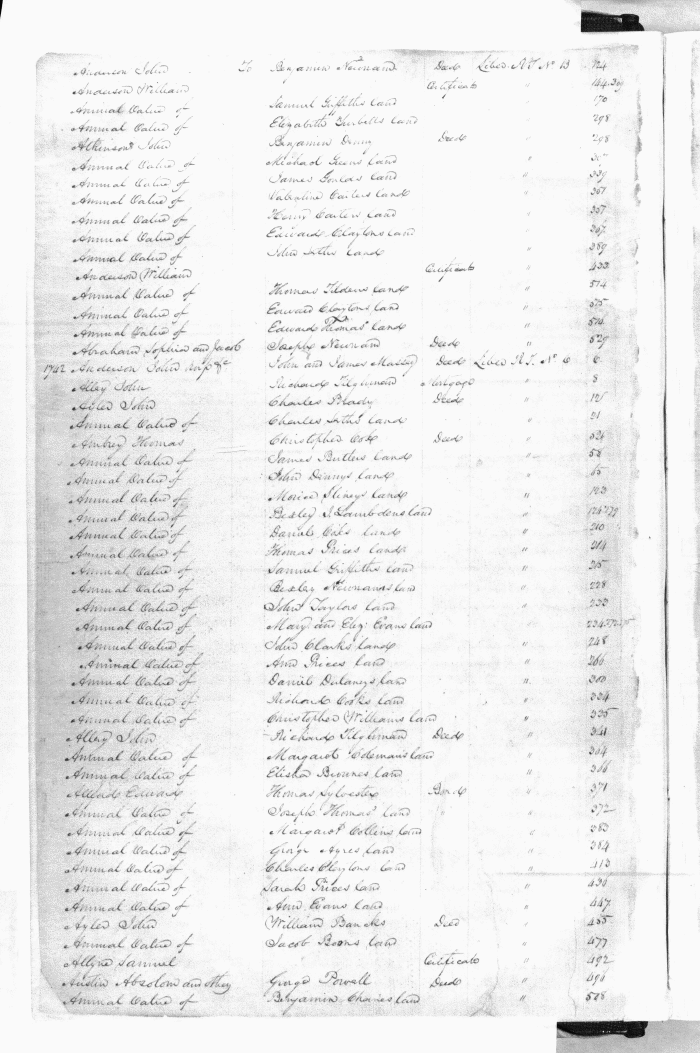 Anderson John To Benjamin Newnam Deed Liber R.T. No B 124
Anderson William Certificate " 144.
Annual Value of Samuel Griffiths land 170
Annual Value of Elizabeth Turbitts land " 298
Atkinson John Benjamin Denny Deed 298
Annual Value of Michael Greens land "
Annual Value of James Goulds land " 339
Annual Value of Valentine Carters land "
Annual Value of Henry Carters land " 357
Annual Value of Edward Claytons land " 367
Annual Value of John land " 389
Anderson William Certificate " 433
Annual Value of Thomas Tildens land " 514
Annual Value of Edward Claytons land "
Annual Value of Edward Thomas' land "
Abraham Sophia and Jacob Joseph Newnam Deed " 529
1742 Anderson John John and James Massey Deed Liber R.T. No C 6
Alley John Richard Tilghman Mortgage " 8
Ayler John Charles Brady Deed "
Annual Value of Charles land " 21
Ambrey Thomas Christopher Cox Deed "
Annual Value of James Butlers land " 58
Annual Value of John Dennys land " 65
Annual Value of land " 123
Annual Value of Bexley J. Lambdens land "
Annual Value of Daniel land " 210
Annual Value of Thomas Prices land " 214
Annual Value of Samuel Griffiths land " 215
Annual Value of Bexley Newnams land " 228
Annual Value of John Taylors land " 233
Annual Value of Mary and Eliz. Evans land "
Annual Value of John Clarks land " 248
Annual Value of Ann Prices land " 266
Annual Value of Daniel Dulaneys land " 300
Annual Value of Richard Cooks land " 334
Annual Value of Christopher Williams land " 335
Alley John Richard Tilghman Deed " 341
Annual Value of Margaret Colemans land " 364
Annual Value of Elisha Brownes land " 366
Allead Edward Thomas Sylvester Bond " 371
Annual Value of Joseph Thomas' land " 372
Annual Value of Margaret Collins land " 383
Annual Value of George Ayres land " 384
Annual Value of Charles Claytons land " 413
Annual Value of Sarah Prices land " 436
Annual Value of Ann Evans land " 447
Ayler John William Bancks Deed " 455
Annual Value of Jacob Boons land " 477
Allyne Samuel Certificate " 492
Austin Absolom and George Powell Deed " 496
Annual Value of Benjamin Chaires land " 508